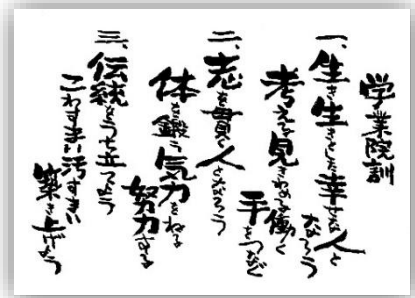 学業院訓
一、生き生きとした幸せな人と
なろう
考える見きわめる働く
手をつなぐ
二、志を貫く人となろう
体を鍛う気力をねる
努力する
三、伝統をうち立てよう
こわすまい汚すまい
築き上げよう